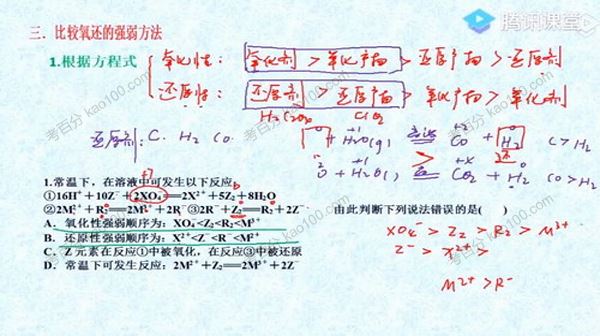 腾讯课堂
三.比较氧还的强弱方法
1.根据方程式
氧化性: 氧化剂 > 氧化产物 > 还原产物 > 还原剂
还原性: 还原剂 > 还原产物 > 氧化产物 > 氧化剂
考百分 kao100.com
还原剂: C. H2 CO.
H2O(g) 高温 CO + H2 C > H2
CO2 + H2 CO > H2
+7
1.常温下,在溶液中可发生以下反应:
①16H⁺+10Z⁻+2XO₄⁻═2X²⁺+5Z₂+8H₂O
②2M²⁺+R₂═2M³⁺+2R⁻③2R⁻+Z₂═R₂+2Z⁻ 由此判断下列说法错误的是( )
A.氧化性强弱顺序为:XO₄⁻<Z₂<R₂<M³⁺
B.还原性强弱顺序为:X²⁺<Z⁻<R⁻<M²⁺
C.Z元素在反应①中被氧化,在反应③中被还原
D.常温下可发生反应:2M²⁺+Z₂═2M³⁺+2Z⁻
XO4⁻ > Z2 > R2 > M³⁺
Z⁻ > X²⁺ >
M²⁺ > R⁻